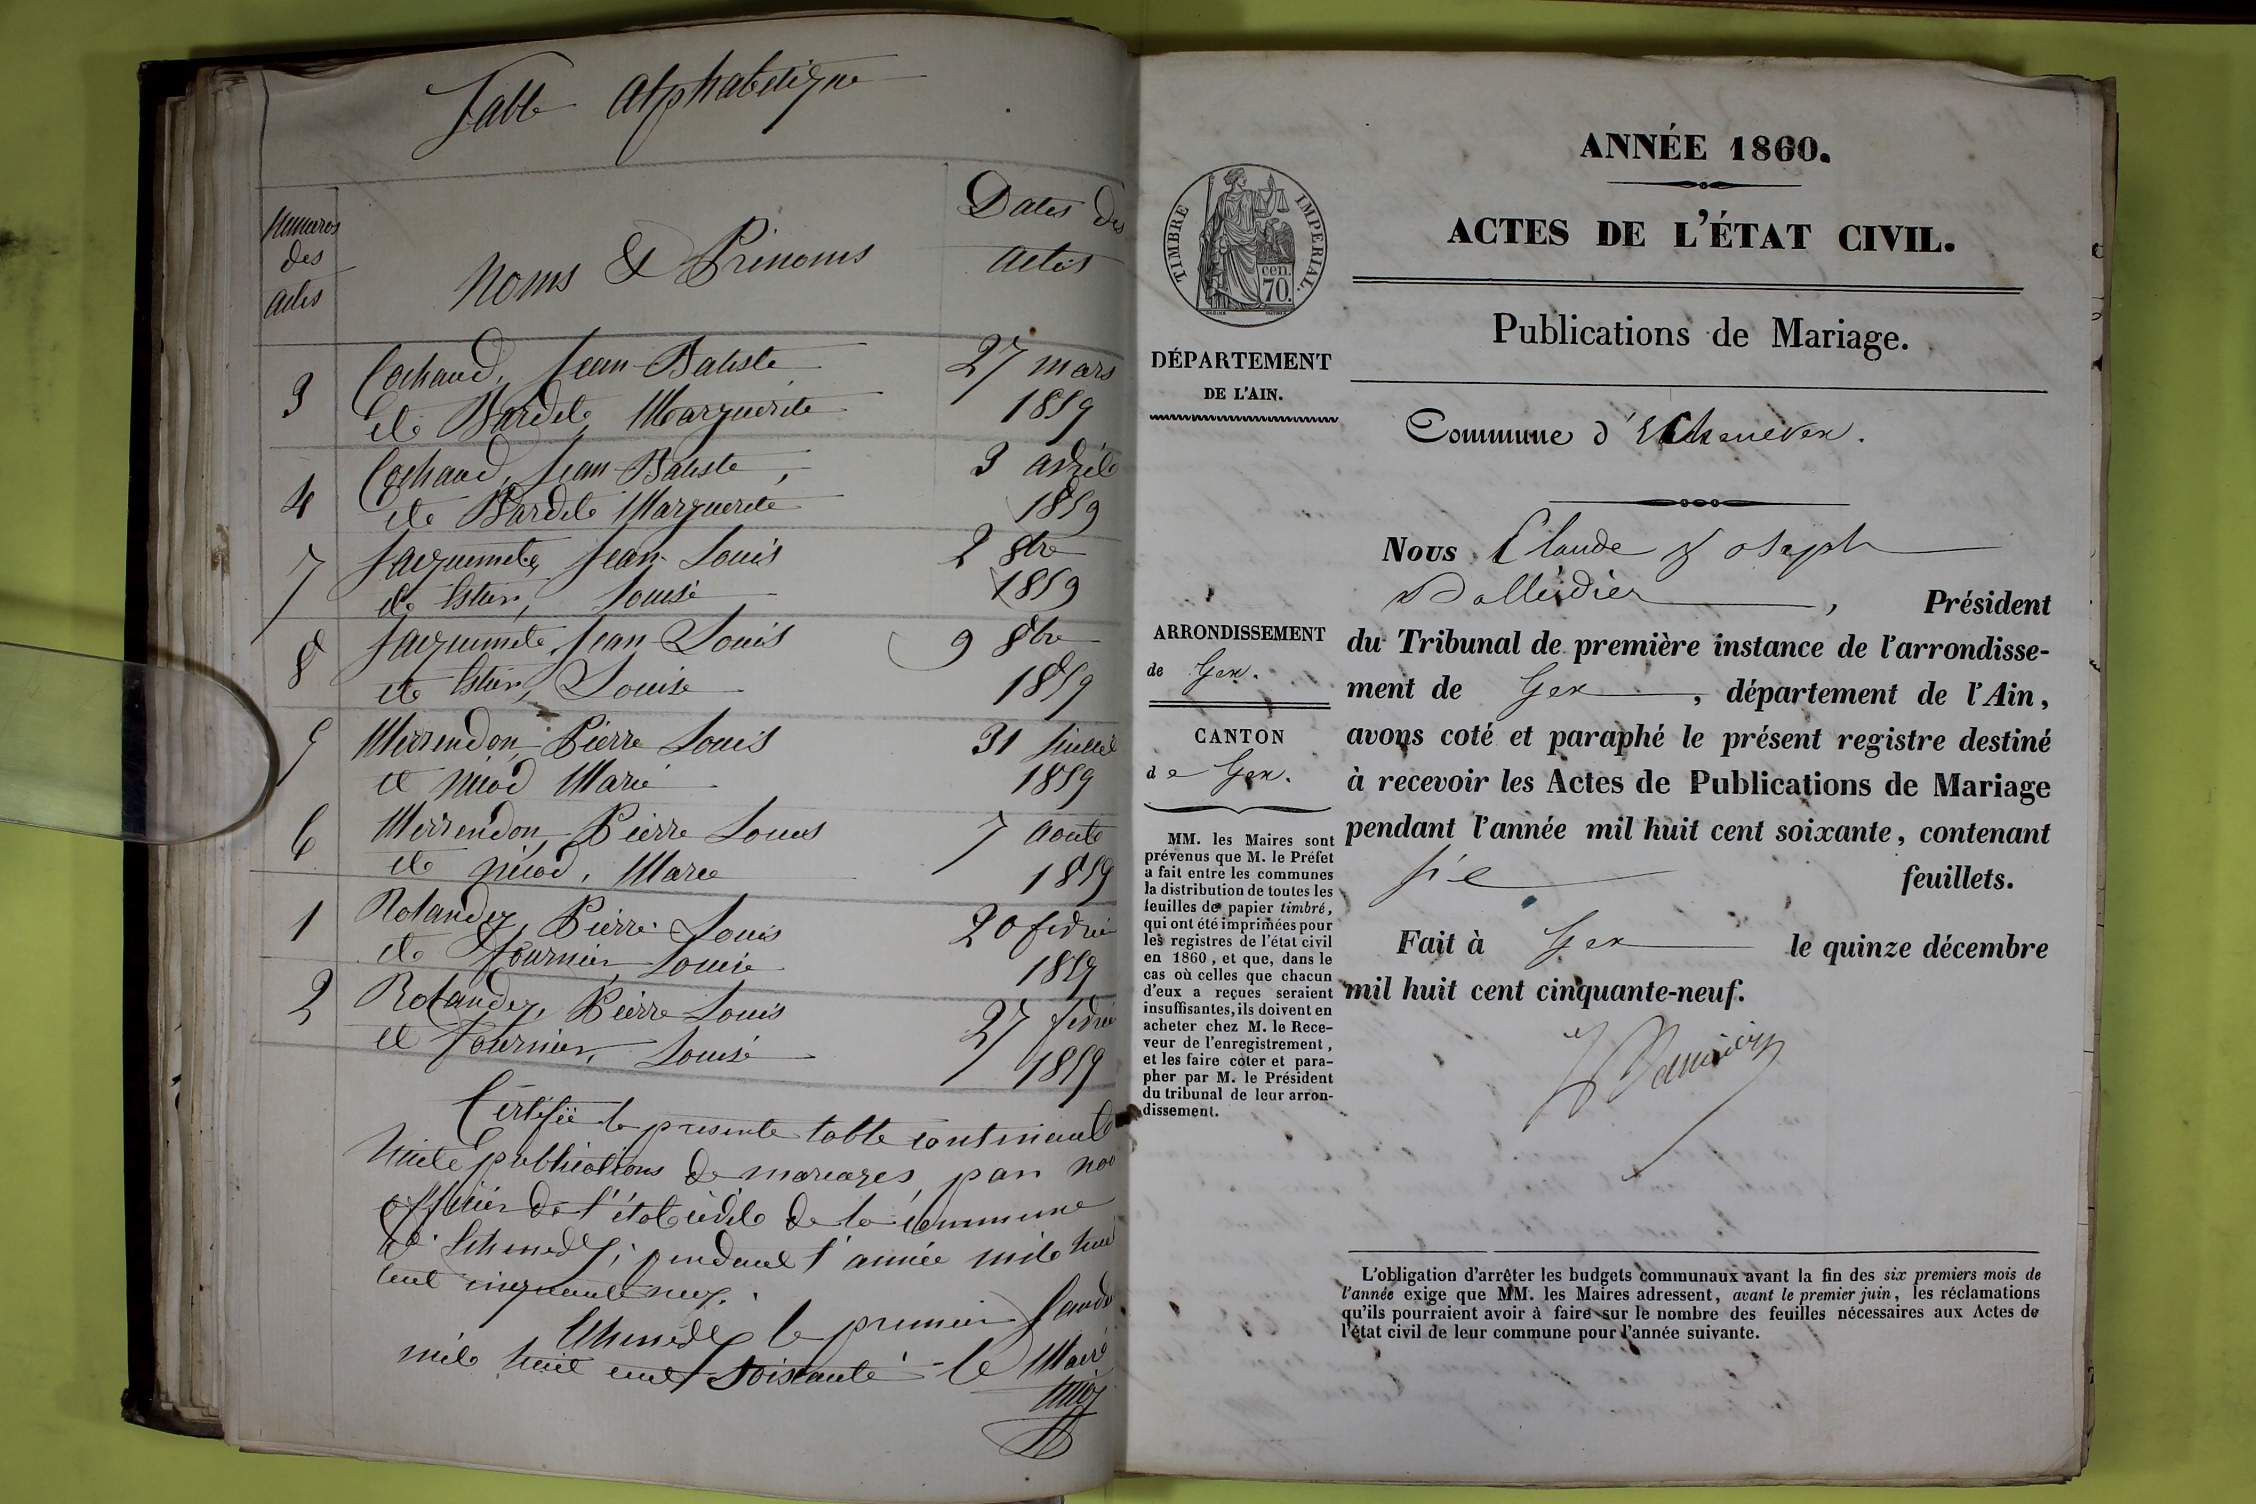 Table Alphabetique
Numeros
des
actes
Noms & Prénoms
Dates des
actes
3
Cochaud, Jean-Batiste
et Bardet Marguerite
27 mars
1859
4
Cochaud, Jean-Batiste,
et Bardet Marguerite
3 avril
1859
7
Jacquemet, Jean Louis
et Louise
2 8bre
1859
8
Jacquemet, Jean Louis
et Louise
9 8bre
1859
5
Merrendon, Pierre Louis
et Niod Marie
31 Juillet
1859
6
Merrendon, Pierre Louis
et Niod, Marie
7 Aout
1859
1
Rolandez, Pierre Louis
et Fournier, Louise
20 fevrier
1859
2
Rolandez, Pierre Louis
et Fournier, Louise
27 fevrier
1859
Certifié la presente table contenant
huit publications de mariages, par nou
officier de l'état civil de la commune
d'Echenevex, pendant l'année mil huit
cent cinquante neuf.
Echenevex le premier Janvier
mil huit cent soixante - le Maire
ANNÉE 1860.
ACTES DE L'ÉTAT CIVIL.
Publications de Mariage.
TIMBRE IMPERIAL.
cen.
70.
DÉPARTEMENT
DE L'AIN.
Commune d'Echenevex.
Nous Claude Joseph
, Président
du Tribunal de première instance de l'arrondisse-
ment de Gex, département de l'Ain,
avons coté et paraphé le présent registre destiné
à recevoir les Actes de Publications de Mariage
pendant l'année mil huit cent soixante, contenant
feuillets.
Fait à Gex le quinze décembre
mil huit cent cinquante-neuf.
ARRONDISSEMENT
de Gex.
CANTON
de Gex.
MM. les Maires sont
prévenus que M. le Préfet
a fait entre les communes
la distribution de toutes les
feuilles de papier timbré,
qui ont été imprimées pour
les registres de l'état civil
en 1860, et que, dans le
cas où celles que chacun
d'eux a reçues seraient
insuffisantes, ils doivent en
acheter chez M. le Rece-
veur de l'enregistrement,
et les faire coter et para-
pher par M. le Président
du tribunal de leur arron-
dissement.
L'obligation d'arrêter les budgets communaux avant la fin des six premiers mois de
l'année exige que MM. les Maires adressent, avant le premier juin, les réclamations
qu'ils pourraient avoir à faire sur le nombre des feuilles nécessaires aux Actes de
l'état civil de leur commune pour l'année suivante.